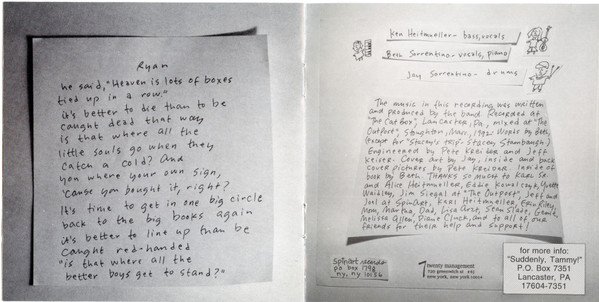 Ryan
he said, "Heaven is lots of boxes
tied up in a row."
it's better to die than to be
caught dead that way
is that where all the
little souls go when they
catch a cold? And
you where your own sign,
'cause you bought it, right?
It's time to get in one big circle
back to the big books again
it's better to line up than be
caught red-handed
"is that where all the
better boys get to stand?"
Ken Heitmueller - bass, vocals
Beth Sorrentino - vocals, piano
Jay Sorrentino - drums
The music in this recording was written
and produced by the band. Recorded at
"The Cat Box", Lancaster, PA, mixed at "The
Outpost", Stoughton, Mass., 1992. Words by Beth,
(except for "Stacey's Trip" - Stacey Stambaugh.)
Engineered by Pete Kreider and Jeff
Keiser. Cover art by Jay, inside and back
cover pictures by Pete Kreider. Inside of
book by Beth. THANKS SO MUCH to Karl Sr.
and Alice Heitmueller, Eddie Kowalczyk, Yvette
Jim Siegal at "The Outpost", Jeff and
Joel at SpinArt, Karl Heitmueller, Erin Riley,
Mom, Martha, Dad, Lisa Grat, Sean Slade, Genie,
Melissa Allen, Diane Cluck, and to all of our
friends for their help and support!
SpinArt records
po box 1798
ny, ny 10156
twenty management
720 greenwich st
new york, new york 10014
for more info:
"Suddenly, Tammy!"
P.O. Box 7351
Lancaster, PA
17604-7351